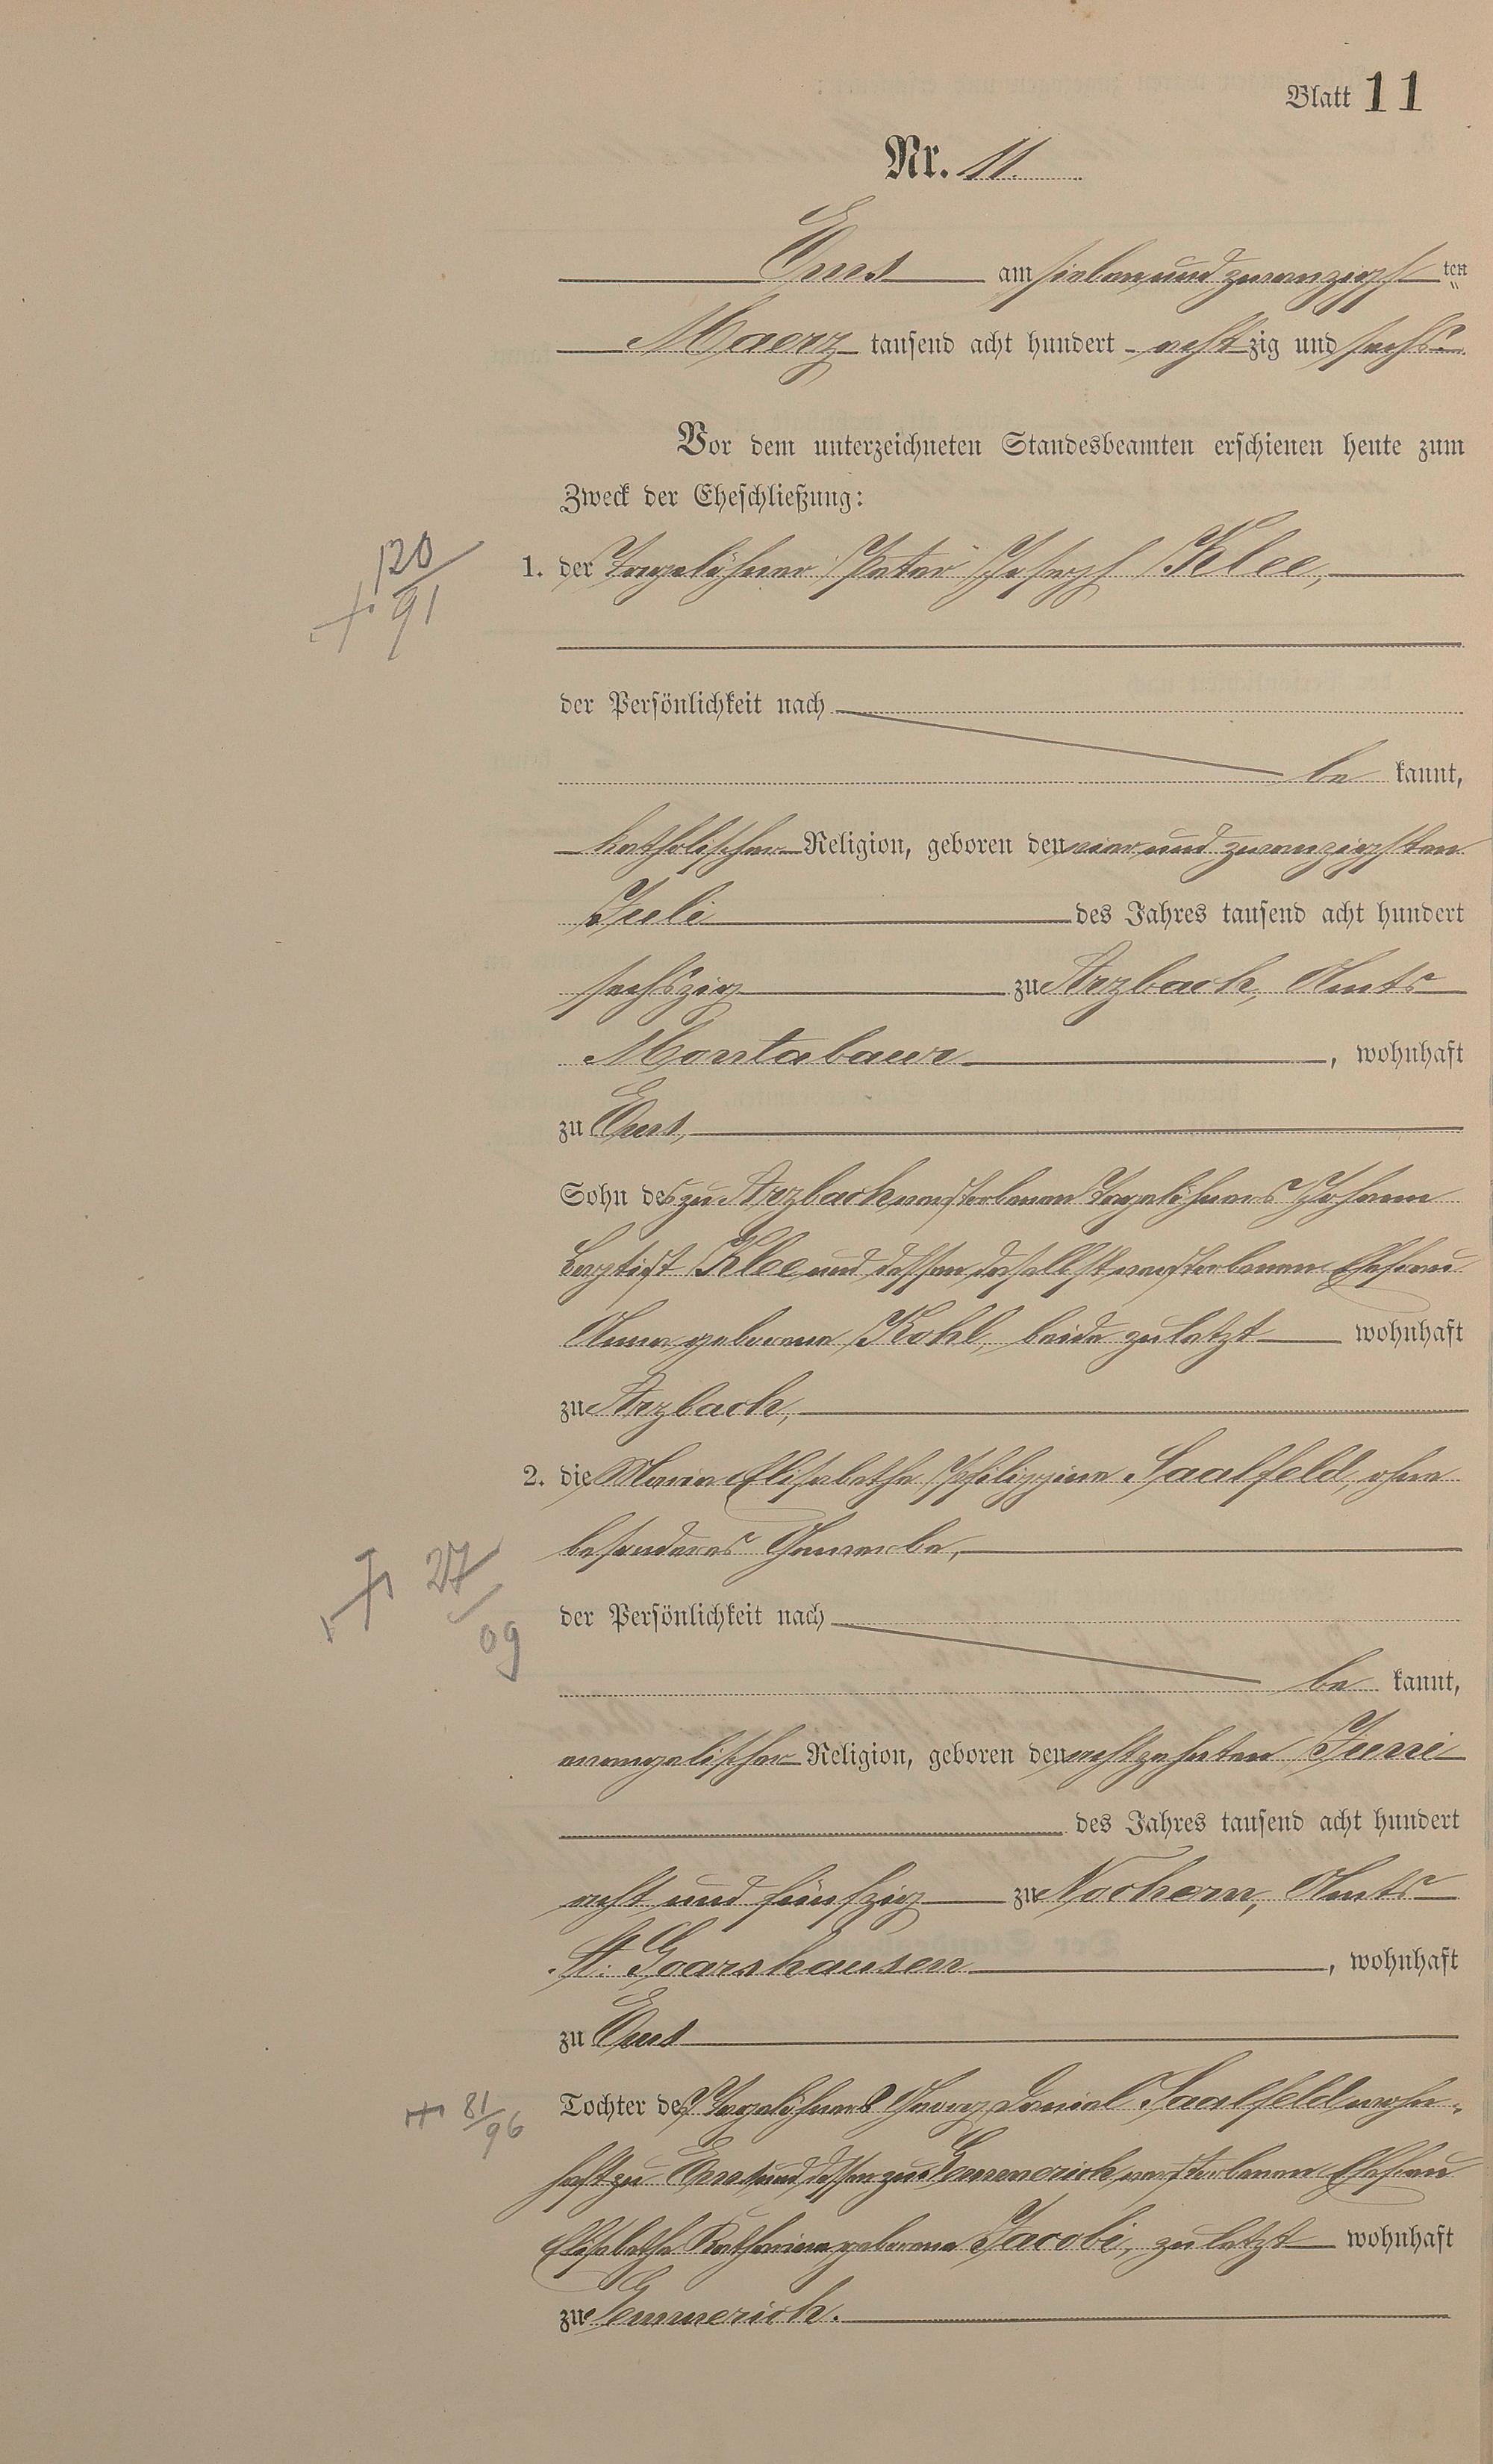 Blatt 11
Nr. 11.
Ems am siebenundzwanzigst ten
Maerz tausend acht hundert achtzig und sechs.
Vor dem unterzeichneten Standesbeamten erschienen heute zum
Zweck der Eheschließung:
120
1. der Tagelöhner Peter Joseph Klee,
+ 91
der Persönlichkeit nach
be kannt,
katholischer Religion, geboren den vierundzwanzigsten
Juli des Jahres tausend acht hundert
sechszig zu Arzbach, Amts
Montabaur, wohnhaft
zu Ems,
Sohn des zu Arzbach verstorbenen Tagelöhners Johann
Baptist Klee und dessen daselbst verstorbenen Ehefrau
Anna geborene Kohl, beide zuletzt wohnhaft
zu Arzbach,
2. die Maria Elisabetha Philippine Saalfeld, ohne
besonderes Gewerbe,
+ 27
09
der Persönlichkeit nach
be kannt,
evangelischer Religion, geboren den achtzehnten Juni
des Jahres tausend acht hundert
acht und fünfzig zu Nochern, Amts
St. Goarshausen, wohnhaft
zu Ems
+ 81/96 Tochter des Tagelöhners Georg Daniel Saalfeld wohn-
haft zu Ems und dessen zu Gemmerich verstorbenen Ehefrau
Elisabetha Katharina geborene Jacobi, zuletzt wohnhaft
zu Gemmerich.